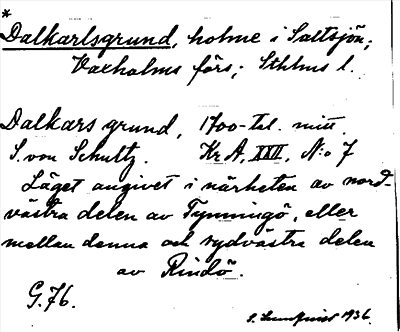 *
Dalkarlsgrund, holme i Saltsjön;
Vaxholms förs; Sthlms l.
Dalkars grund, 1700-tal. mitt.
S. von Schultz. Kr A, XXII, N:o 7
Läget angivet i närheten av nord-
västra delen av Tynningö, eller
mellan denna och sydvästra delen
av Rindö.
G. 76.
S. Lundqvist 1936